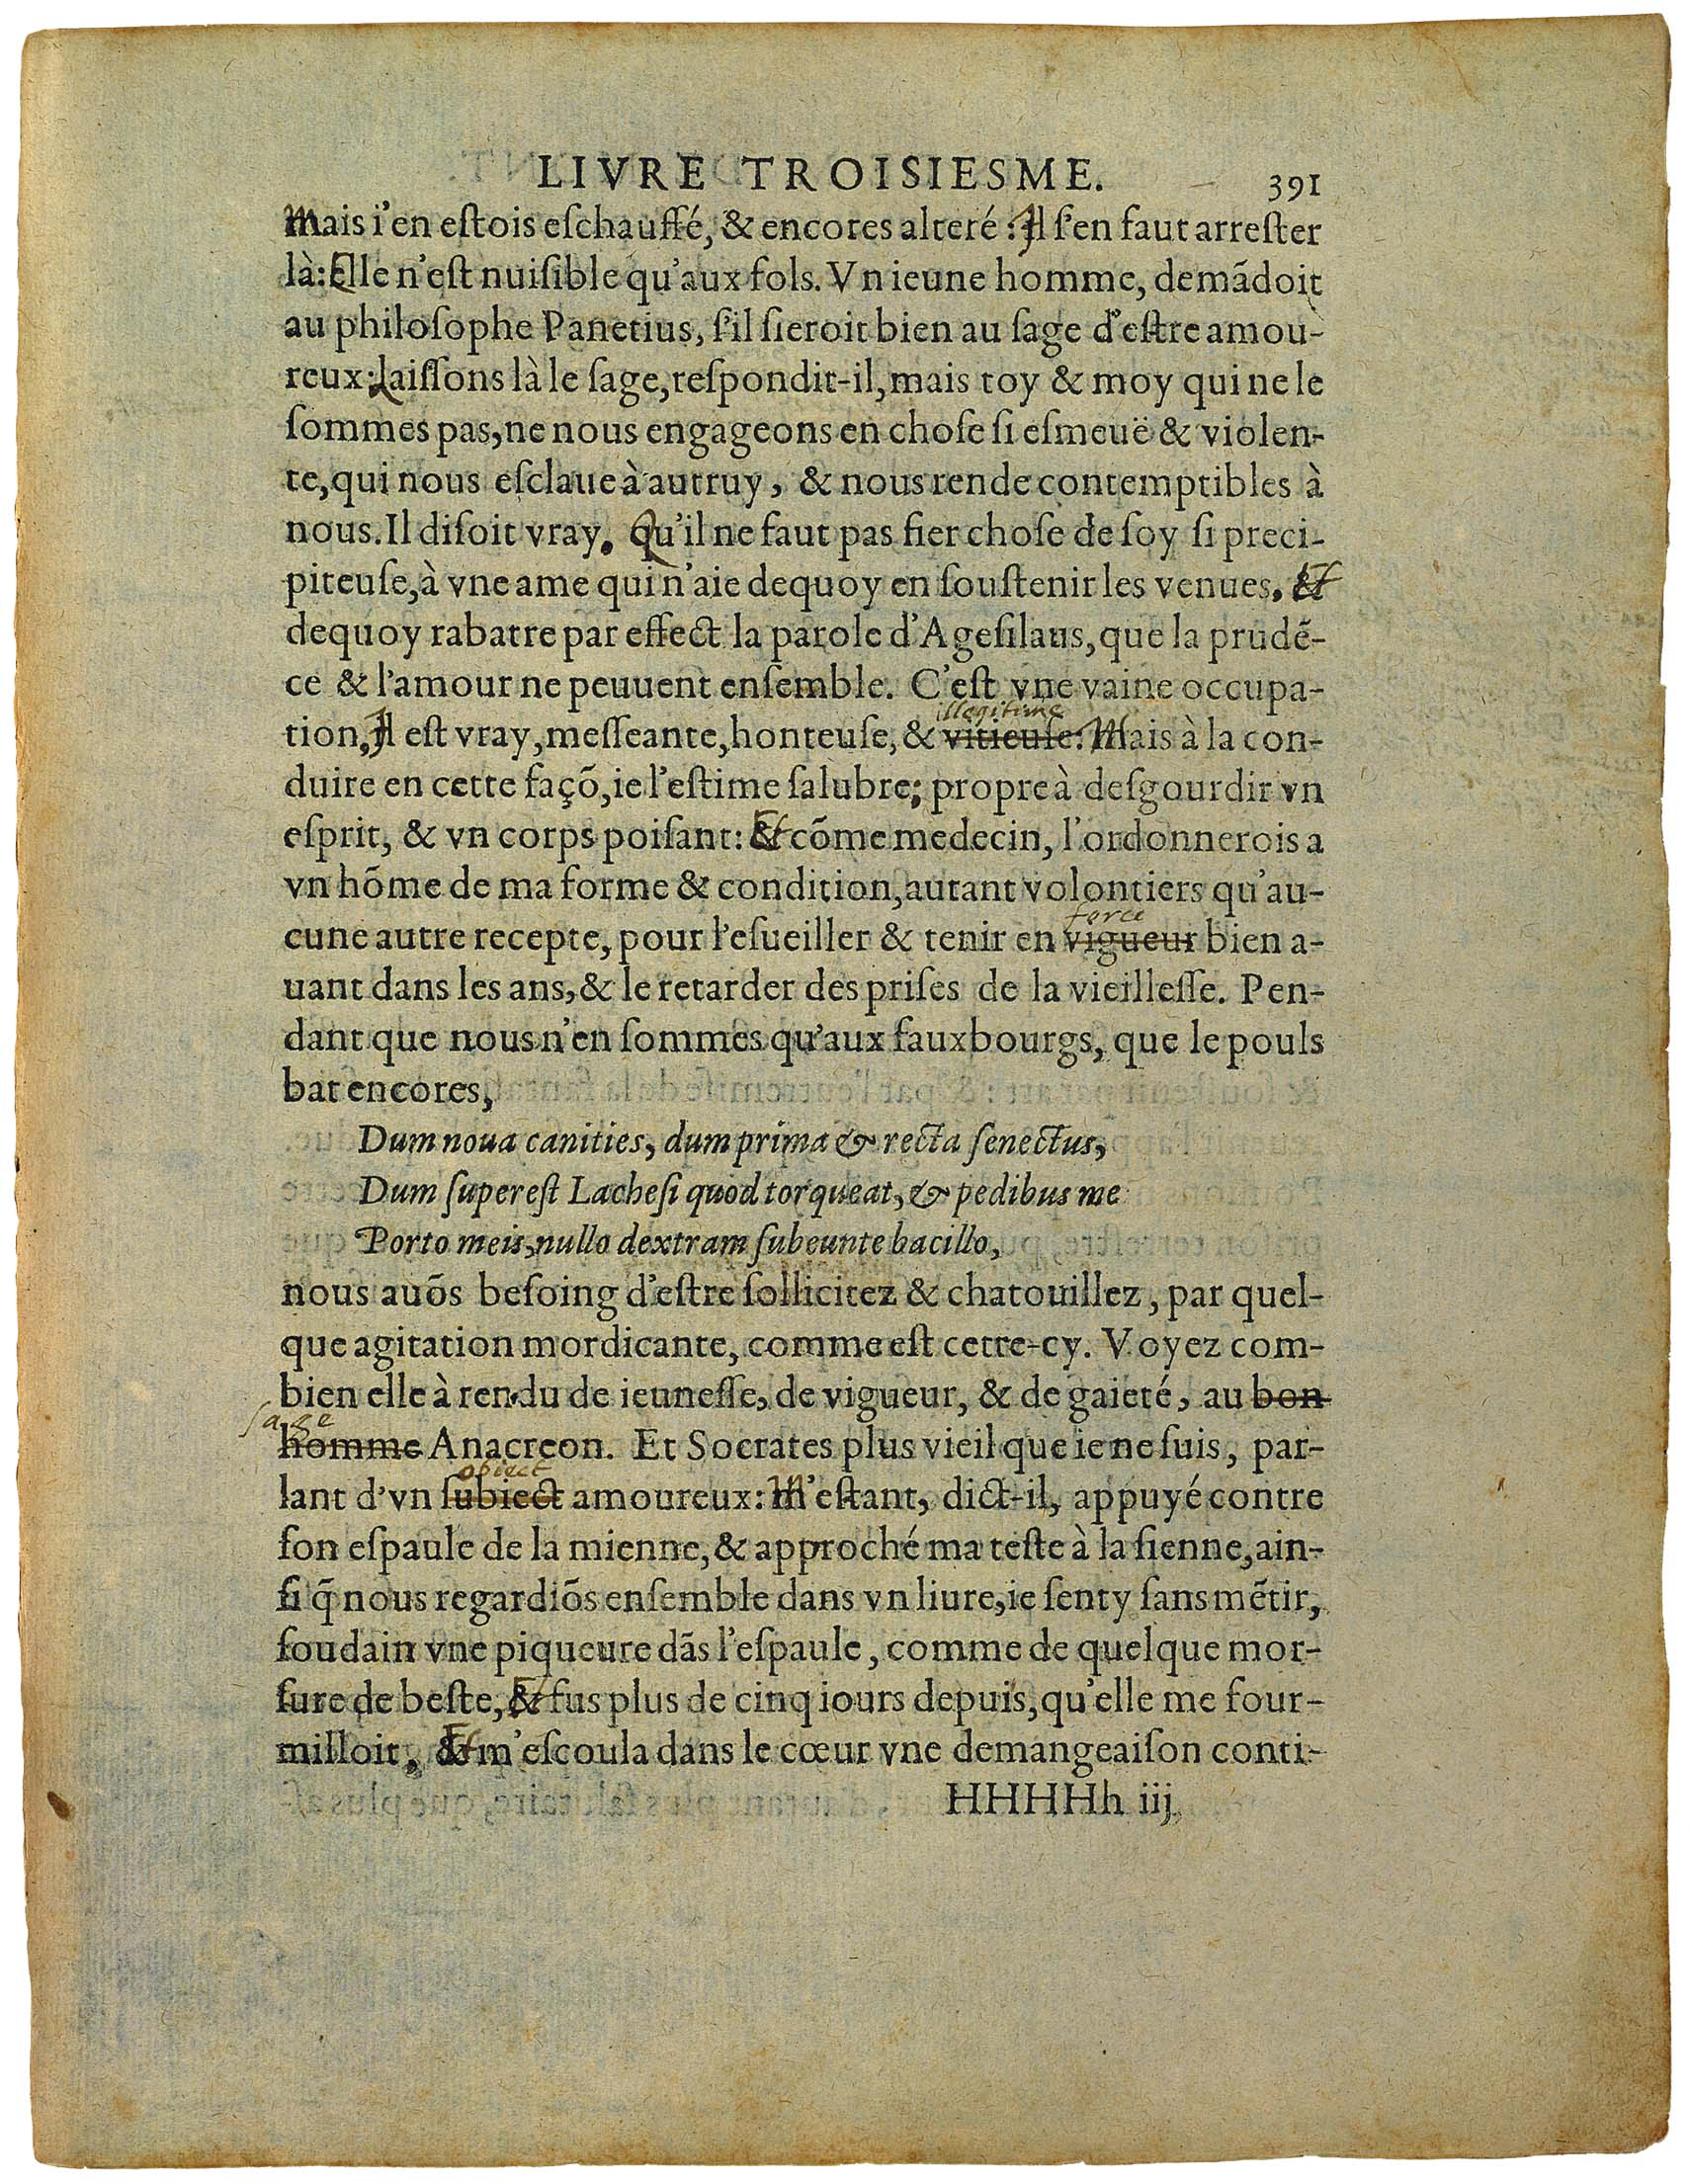 LIVRE TROISIESME. 391
Mais i'en eſtois eſchauffé, & encores alteré : Il ſ'en faut arreſter
là: Elle n'eſt nuiſible qu'aux fols. Vn ieune homme, demãdoit
au philoſophe Panetius, ſ'il ſieroit bien au ſage d'eſtre amou-
reux: Laiſſons là le ſage, reſpondit-il, mais toy & moy qui ne le
ſommes pas, ne nous engageons en choſe ſi eſmeuë & violen-
te, qui nous eſclaue à autruy, & nous rende contemptibles à
nous. Il diſoit vray. Qu'il ne faut pas fier choſe de ſoy ſi preci-
piteuſe, à vne ame qui n'aie dequoy en ſouſtenir les venues. Et
dequoy rabatre par effect la parole d'Ageſilaus, que la prudẽ-
ce & l'amour ne peuuent enſemble. C'eſt vne vaine occupa-
illegitime
tion, Il eſt vray, meſſeante, honteuſe, & vitieuſe: Mais à la con-
duire en cette façõ, ie l'eſtime ſalubre; propre à deſgourdir vn
eſprit, & vn corps poiſant: Et cõme medecin, l'ordonnerois a
vn hõme de ma forme & condition, autant volontiers qu'au-
force
cune autre recepte, pour l'eſueiller & tenir en vigueur bien a-
uant dans les ans, & le retarder des priſes de la vieilleſſe. Pen-
dant que nous n'en ſommes qu'aux fauxbourgs, que le pouls
bat encores,
Dum noua canities, dum prima & recta ſenectus,
Dum ſupereſt Lacheſi quod torqueat, & pedibus me
Porto meis, nullo dextram ſubeunte bacillo,
nous auõs beſoing d'eſtre ſollicitez & chatouillez, par quel-
que agitation mordicante, comme eſt cette-cy. Voyez com-
bien elle à rendu de ieuneſſe, de vigueur, & de gaieté, au bon
sage
homme Anacreon. Et Socrates plus vieil que ie ne ſuis, par-
obiect
lant d'vn ſubiect amoureux: M'eſtant, dict-il, appuyé contre
ſon eſpaule de la mienne, & approché ma teſte à la ſienne, ain-
ſi q̃ nous regardiõs enſemble dans vn liure, ie ſenty ſans mẽtir,
ſoudain vne piqueure dãs l'eſpaule, comme de quelque mor-
ſure de beſte, Et fus plus de cinq iours depuis, qu'elle me four-
milloit, Et m'eſcoula dans le cœur vne demangeaiſon conti-
HHHHHh iij